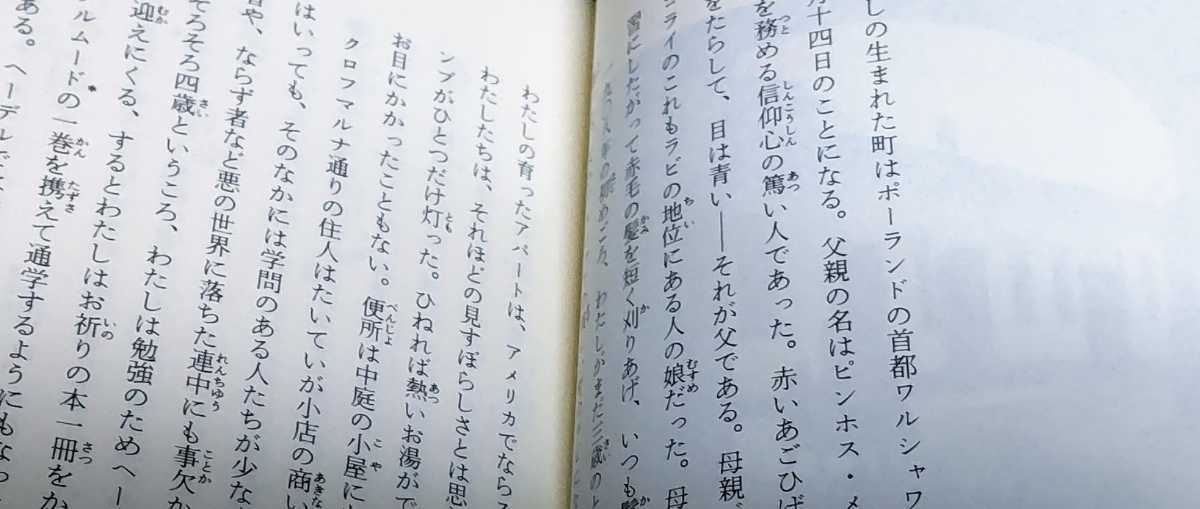 しの生まれた町はポーランドの首都ワルシャワ
十四日のことになる。父親の名はピンホス・メ
を務める信仰心の篤い人であった。赤いあごひげ
をたらして、目は青い――それが父である。母親
コライのこれもラビの地位にある人の娘だった。母
習にしたがって赤毛の髪を短く刈りあげ、いつも
わたしがまだ三歳のと
わたしの育ったアパートは、アメリカでならス
わたしたちは、それほどの見すぼらしさとは思
ンプがひとつだけ灯った。ひねれば熱いお湯がで
お目にかかったこともない。便所は中庭の小屋に
クロフマルナ通りの住人はたいていが小店の商い
はいっても、そのなかには学問のある人たちが少な
や、ならず者など悪の世界に落ちた連中にも事欠か
そろそろ四歳というころ、わたしは勉強のためヘー
迎えにくる、するとわたしはお祈りの本一冊をか
ルムードの一巻を携えて通学するようにもなっ
ある。ヘーデルで